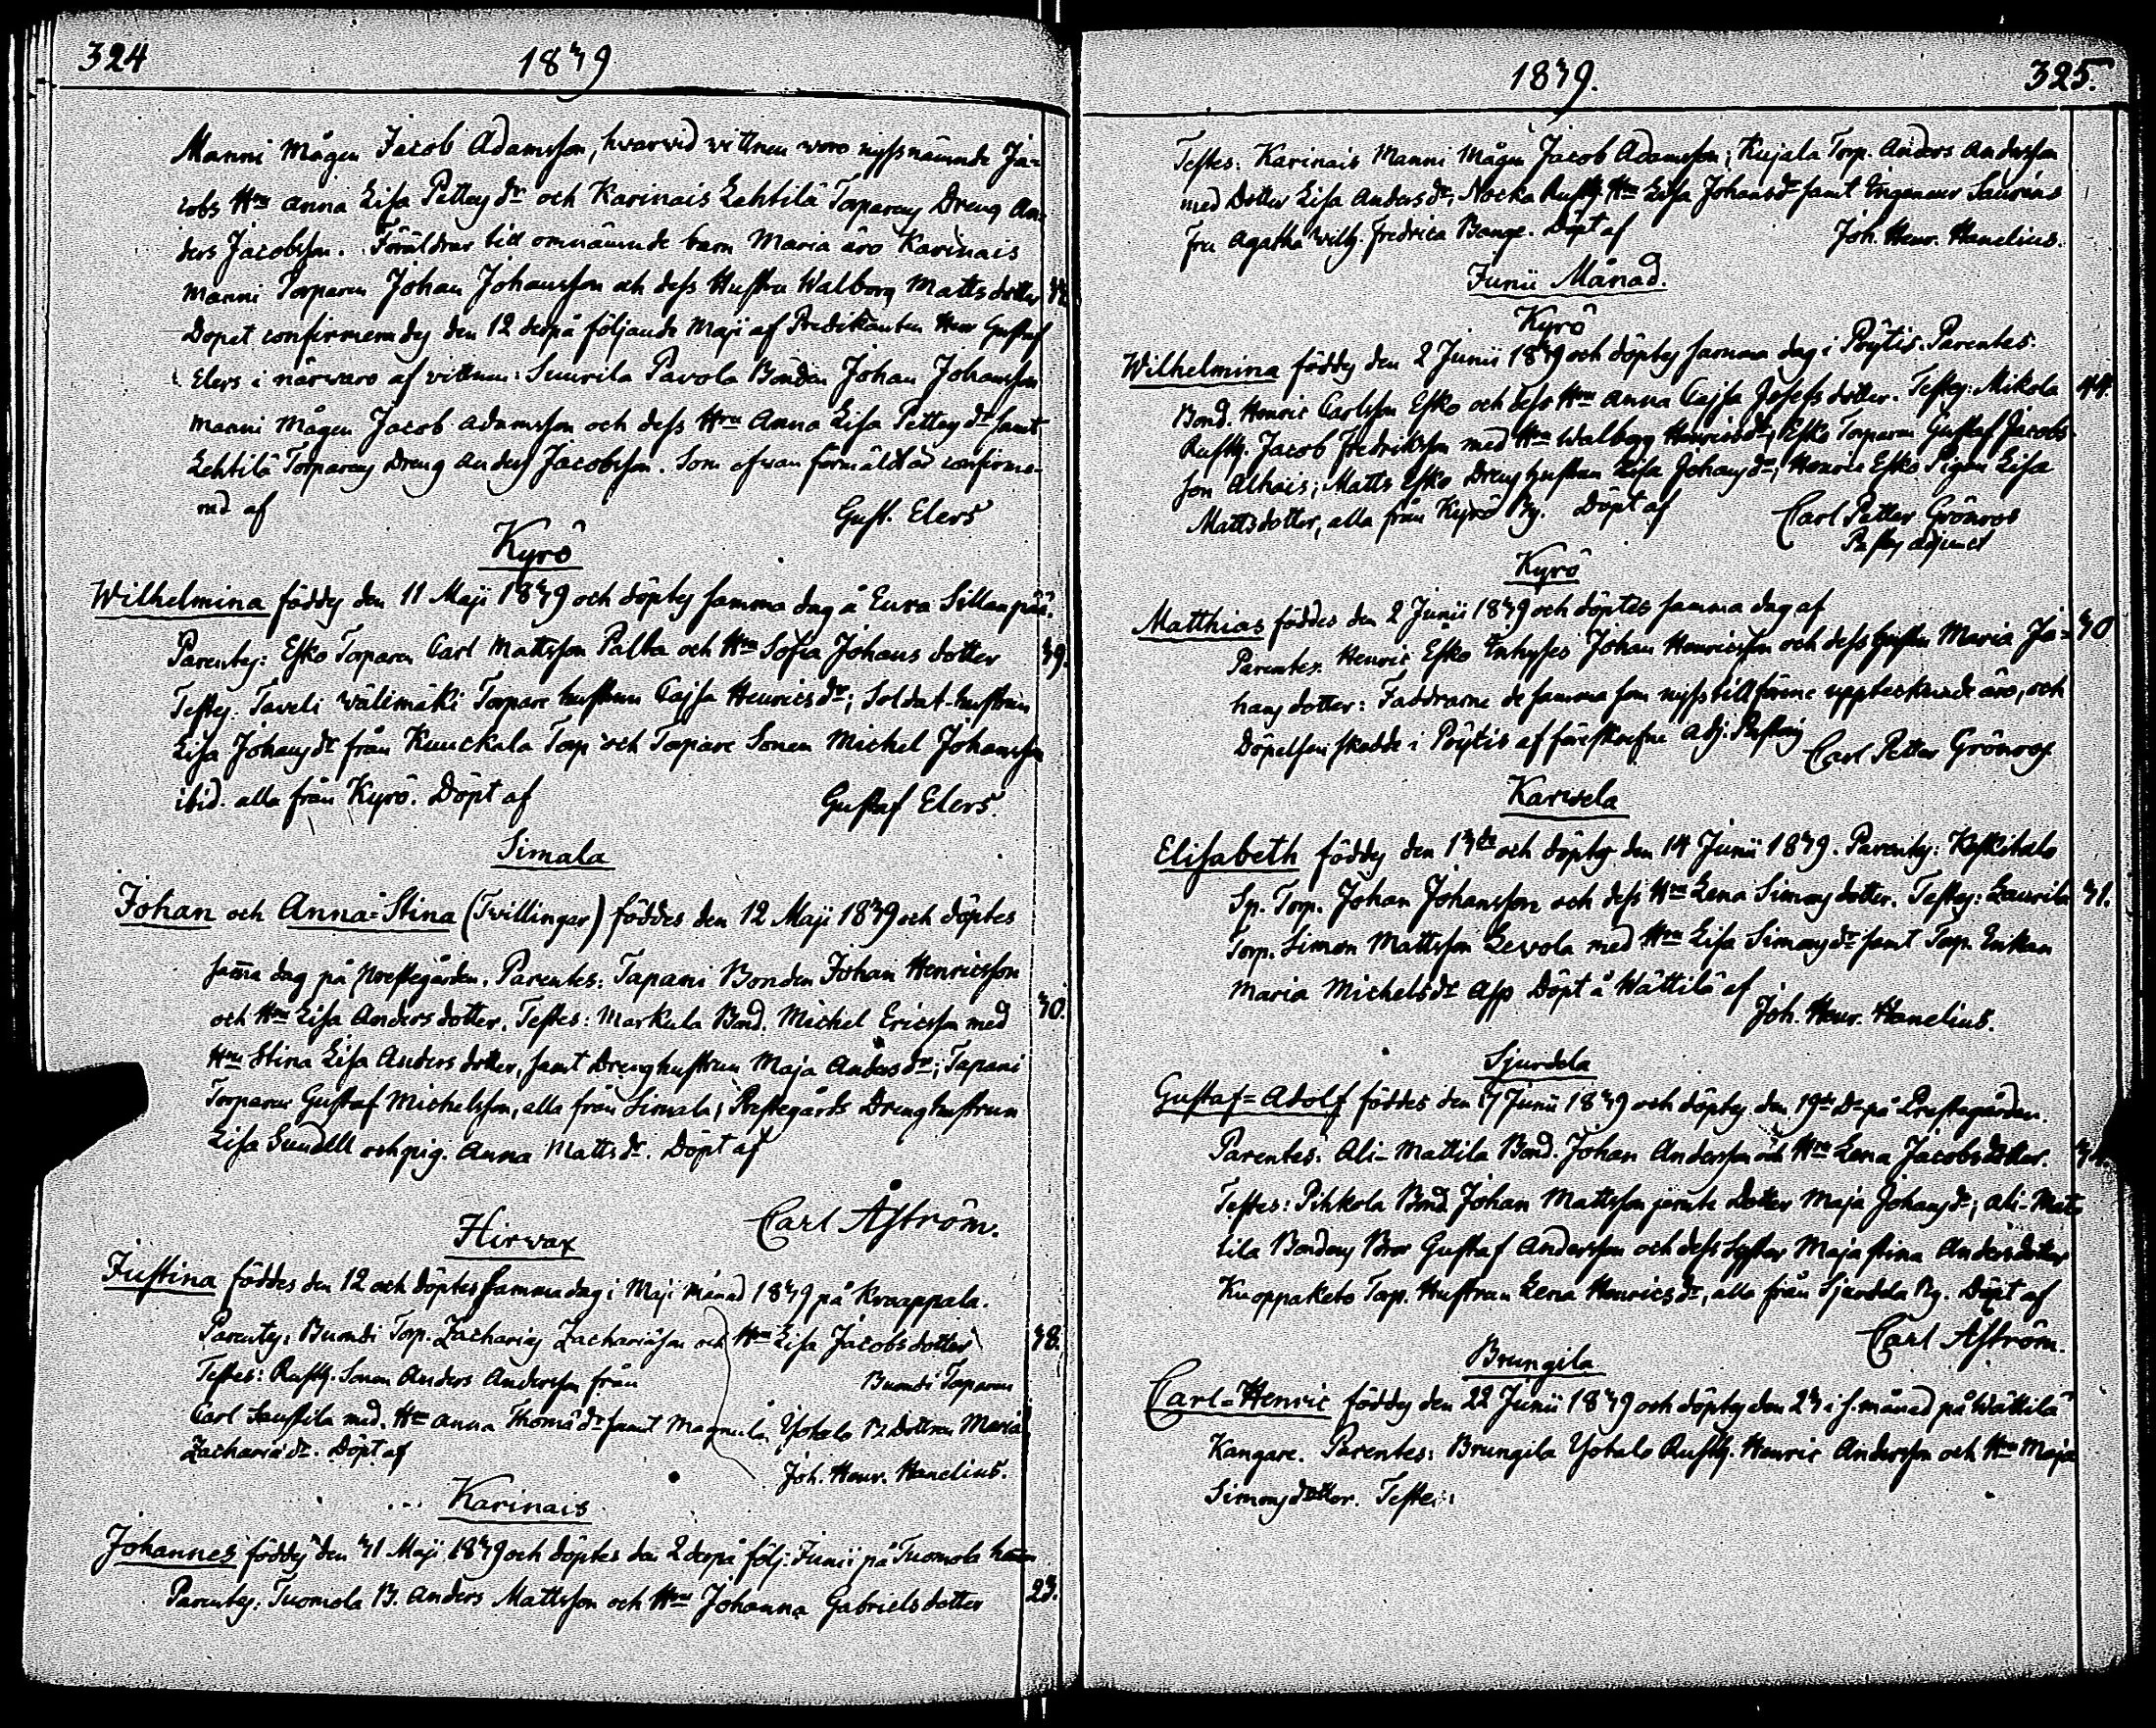 324
1839
Manni Mågen Jacob Adamsson, hvarvid vittnen woro nyssnämnde Ja-
cobs Hru Anna Lisa Petters dr och Karinais Lehtilä Torparens Dreng An-
ders Jacobsson. Föräldrar till omnämnde barn Maria äro Karinais
Manni Torparen Johan Johansson och dess Hustru Walborg Matts dotter
Dopet confirmerades den 12 derpå följande Maji af Predikanten Herr Gustaf
Elers i närwaro af vittnen: Suurila Pavola Bonden Johan Johansson
Manni Mågen Jacob Adamsson och dess Hru Anna Lisa Petters dr samt
Lehtilä Torparens Dreng Anders Jacobsson. Som ofvan förmäldt är confirme-
rad af
Gust. Elers
Kyrö
Wilhelmina föddes den 11 Maji 1839 och döptes samma dag å Eura Sillanpää.
Parentes: Esko Torparen Carl Mattsson Palba och Hru Sofia Johans dotter
39.
Testes: Taveli Wälimäki Torpare hustrun Cajsa Henrics dr; Soldat-hustrun
Lisa Johans dr från Kuuckala Torp och Torpare Sonen Michel Johansson
ibid. alla från Kyrö. Döpt af
Gustaf Elers.
Simala
Johan och Anna=Stina (Tvillingar) föddes den 12 Maji 1839 och döptes
samma dag på Prestegården. Parentes: Tapani Bonden Johan Henricsson
och Hru Lisa Anders dotter. Testes: Markula Bond. Michel Ericsson med
30.
Hru Stina Lisa Anders dotter, samt Drenghustrun Maja Anders dr; Tapani
Torparen Gustaf Michelsson, alla från Simala; Prestegårds Drenghustrun
Lisa Sundell och pig. Anna Matts dr. Döpt af
Carl Åström.
Hirvax
Justina föddes den 12 och döptes samma dag i Maji månad 1839 på Kraappala.
Parentes: Buondi Torp. Zacharias Zachariasson och Hru Lisa Jacobs dotter
38.
Testes: Rusth. Sonen Anders Andersson från
Buondi Torparen
Carl Saustila med Hru Anna Thomæ dr samt Magnula Yohalo B. Dottren Maria
Zachariæ dr. Döpt af
Joh. Henr. Hanelius.
Karinais
Johannes föddes den 31 Maji 1839 och döptes den 2 derpå följ. Junii på Tuomola hemm
Parentes: Tuomola B. Anders Mattsson och Hru Johanna Gabriels dotter
23.
1839.
325.
Testes: Karinais Manni Mågen Jacob Adamsson; Kujala Torp. Anders Andersson
med Dotter Lisa Anders dr; Nocka Rusth. Hru Lisa Johans dr samt Ingenieur Saurens
Fru Agatha Wilh. Fredrica Bange. Döpt af
Joh. Henr. Hanelius.
Junii Månad.
Kyrö
Wilhelmina föddes den 2 Junii 1839 och döptes samma dag i Pöytis. Parentes:
Bond. Henric Carlsson Esko och dess Hru Anna Cajsa Josefs dotter. Testes: Mikola
44.
Rusth. Jacob Fredriksson med Hru Walborg Henrics dr; Esko Torparen Gustaf Jacobs-
son Alhais; Matts Esko Dreng hustrun Lisa Johans dr; Henric Esko Pigan Lisa
Mattsdotter, alla från Kyrö By. Döpt af
Carl Petter Grönros
Past. adjunct
Kyrö
Matthias föddes den 2 Junii 1839 och döptes samma dag af
Parentes: Henric Esko Inhyses Johan Henricsson och dess hustru Maria Jo-
30
hans dotter: Faddrarne de samma som nyss tillförene uppteknade äro, och
Döpelsen skedde i Pöytis af föreskrefne Adj. Pastoris
Carl Petter Grönros
Karvela
Elisabeth föddes den 13de och döptes den 14 Junii 1839. Parentes: Keskitalo
Sp. Torp. Johan Johansson och dess Hru Lena Simons dotter. Testes: Laurila
31.
Torp. Simon Mattsson Levola med Hru Lisa Simons dr samt Torp. Enkan
Maria Michels dr Asp Döpt å Wättilä af
Joh. Henr. Hanelius.
Sjurdela
Gustaf=Adolf föddes den 17 Junii 1839 och döptes den 19de d:o på Prestegården.
Parentes: Ali-Mattila Bond. Johan Andersson och Hru Lena Jacobs dotter.
Testes: Pihkola Bond. Johan Mattsson jemte Dotter Maja Johans dr; Ali-Mat-
tila Bondens Bror Gustaf Andersson och dess Syster Maja Stina Anders dotter
Kuoppaketo Torp. Hustrun Lena Henrics dr, alla från Sjurdela By. Döpt af
Carl Åström.
Brungila
Carl=Henric föddes den 22 Junii 1839 och döptes den 23 i s. månad på Wättilä
Kangare. Parentes: Brungila Yohalo Rusth. Henric Andersson och Hru Maja
Simons dotter. Testes: